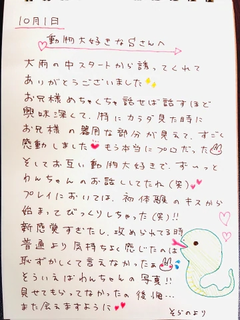 10月1日
動物大好きなSさんへ
大雨の中スタートから誘ってくれて
ありがとうございました
お兄様めちゃくちゃ話せば話すほど
興味深くて、時にカラダ見た時に
お兄様の器用な部分が見えて、すごく
感動しました もう本当にプロだった
そしてお互い動物大好きで、ずーっと
わんちゃんのお話ししてたね(笑)
プレイにおいては、初体験のキスから
始まってびっくりしちゃった(笑)!!
新感覚すぎたし、攻められてる時
普通より気持ちよく感じたのは
恥ずかしくて言えなかったぁ
そういえばわんちゃんの写真!!
見せてもらってなかったの後悔…
また会えますように
そらのより